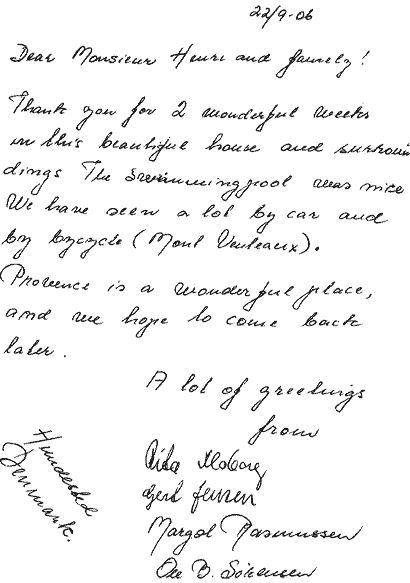 22/9-06
Dear Monsieur Henri and family!
Thank you for 2 wonderful weeks
in this beautiful house and surroun
dings The swimmingpool was nice
We have seen a lot by car and
by bycycle (Mont Venteaux).
Provence is a wonderful place,
and we hope to come back
later.
A lot of greetings
from
Hundested
Denmark.
Gert Jensen
Margot Rasmussen
Ole B. Sörensen